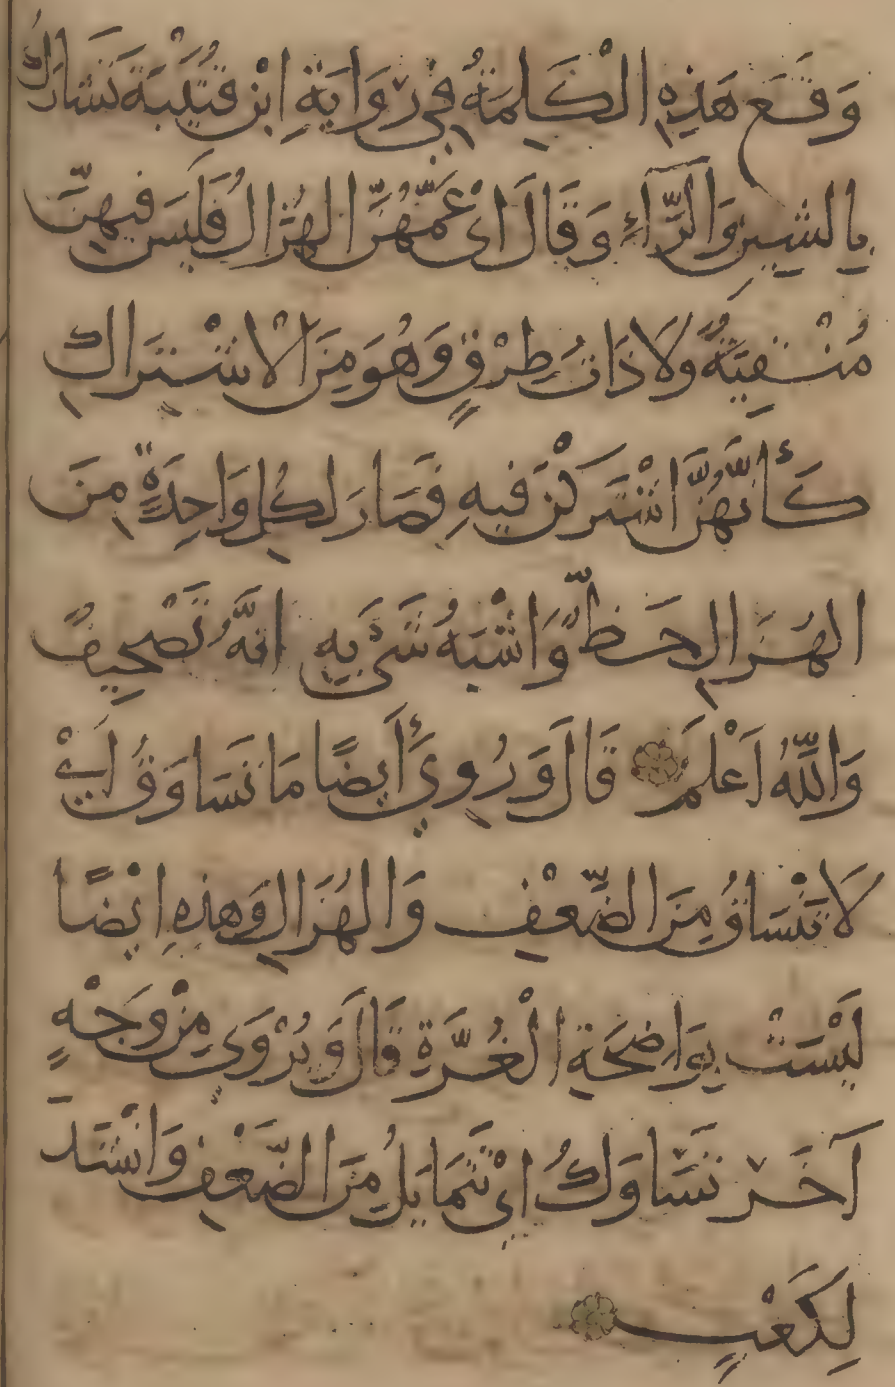 وَقَعَ هَذِهِ الْكَلِمَةُ فِي رِوَايَةِ ابْنِ قُتَيْبَةَ تَشَارَكُ
بِالشِّينِ وَالرَّاءِ وَقَالَ اىْ عَمَّهُنَّ الهُزَالُ فَلَيسَ فيهِنّ
مُنْقِيَةٌ وَلَا ذَاتُ طِرْقٍ وَهُوَ مِنَ الْاشْتِرَاكِ
كَأَنَّهُنَّ اشْتَرَكْنَ فيهِ فَصَارَ لِكُلِ وَاحِدَةٍ مِنَ
الهُزَالِ حَظٌّ وَاشْبَهُ شَىْءٍ بِهِ انَّهُ تَصْحِيفٌ
وَاللّهُ اَعْلَم قَالَ وَرُوِيَ أَيضًا مَا تَسَاوَقُ اَيْ
لَا تَنْسَاقُ مِنَ الضّعْفِ وَالهُزَالِ وَهذِهِ ايْضًا
لَيْسَتْ بِوَاضِحَةِ الْغُرَّةِ قَالَ وَيُرْوَى مِنْ وَجْهٍ
آخَرَ تَسَاوَكُ اىْ تَتَمَايَلُ مِنَ الضَّعْفِ وَانْشَدَ
لِكَعْبٍ